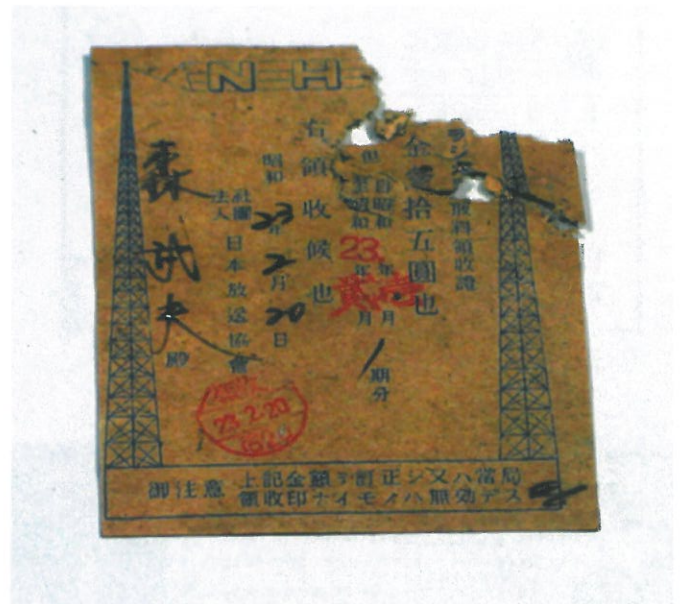 NHK
領收證
金 拾五圓也
自昭和 年 月
至昭和23年 月
1期分
右領收候也
昭和23年2月20日
社團法人日本放送協會
森 武夫 殿
23.2.20
御注意 上記金額ヲ訂正シ又ハ當局
領收印ナイモノハ無効デス